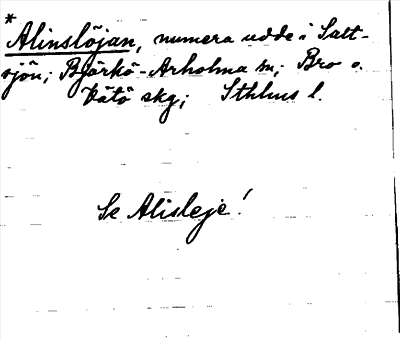 *
Alinslöjan, numera udde i Salt-
sjön; Björkö-Arholma sn; Bro o.
Vätö skg; Sthlms l.
Se Alisleje!